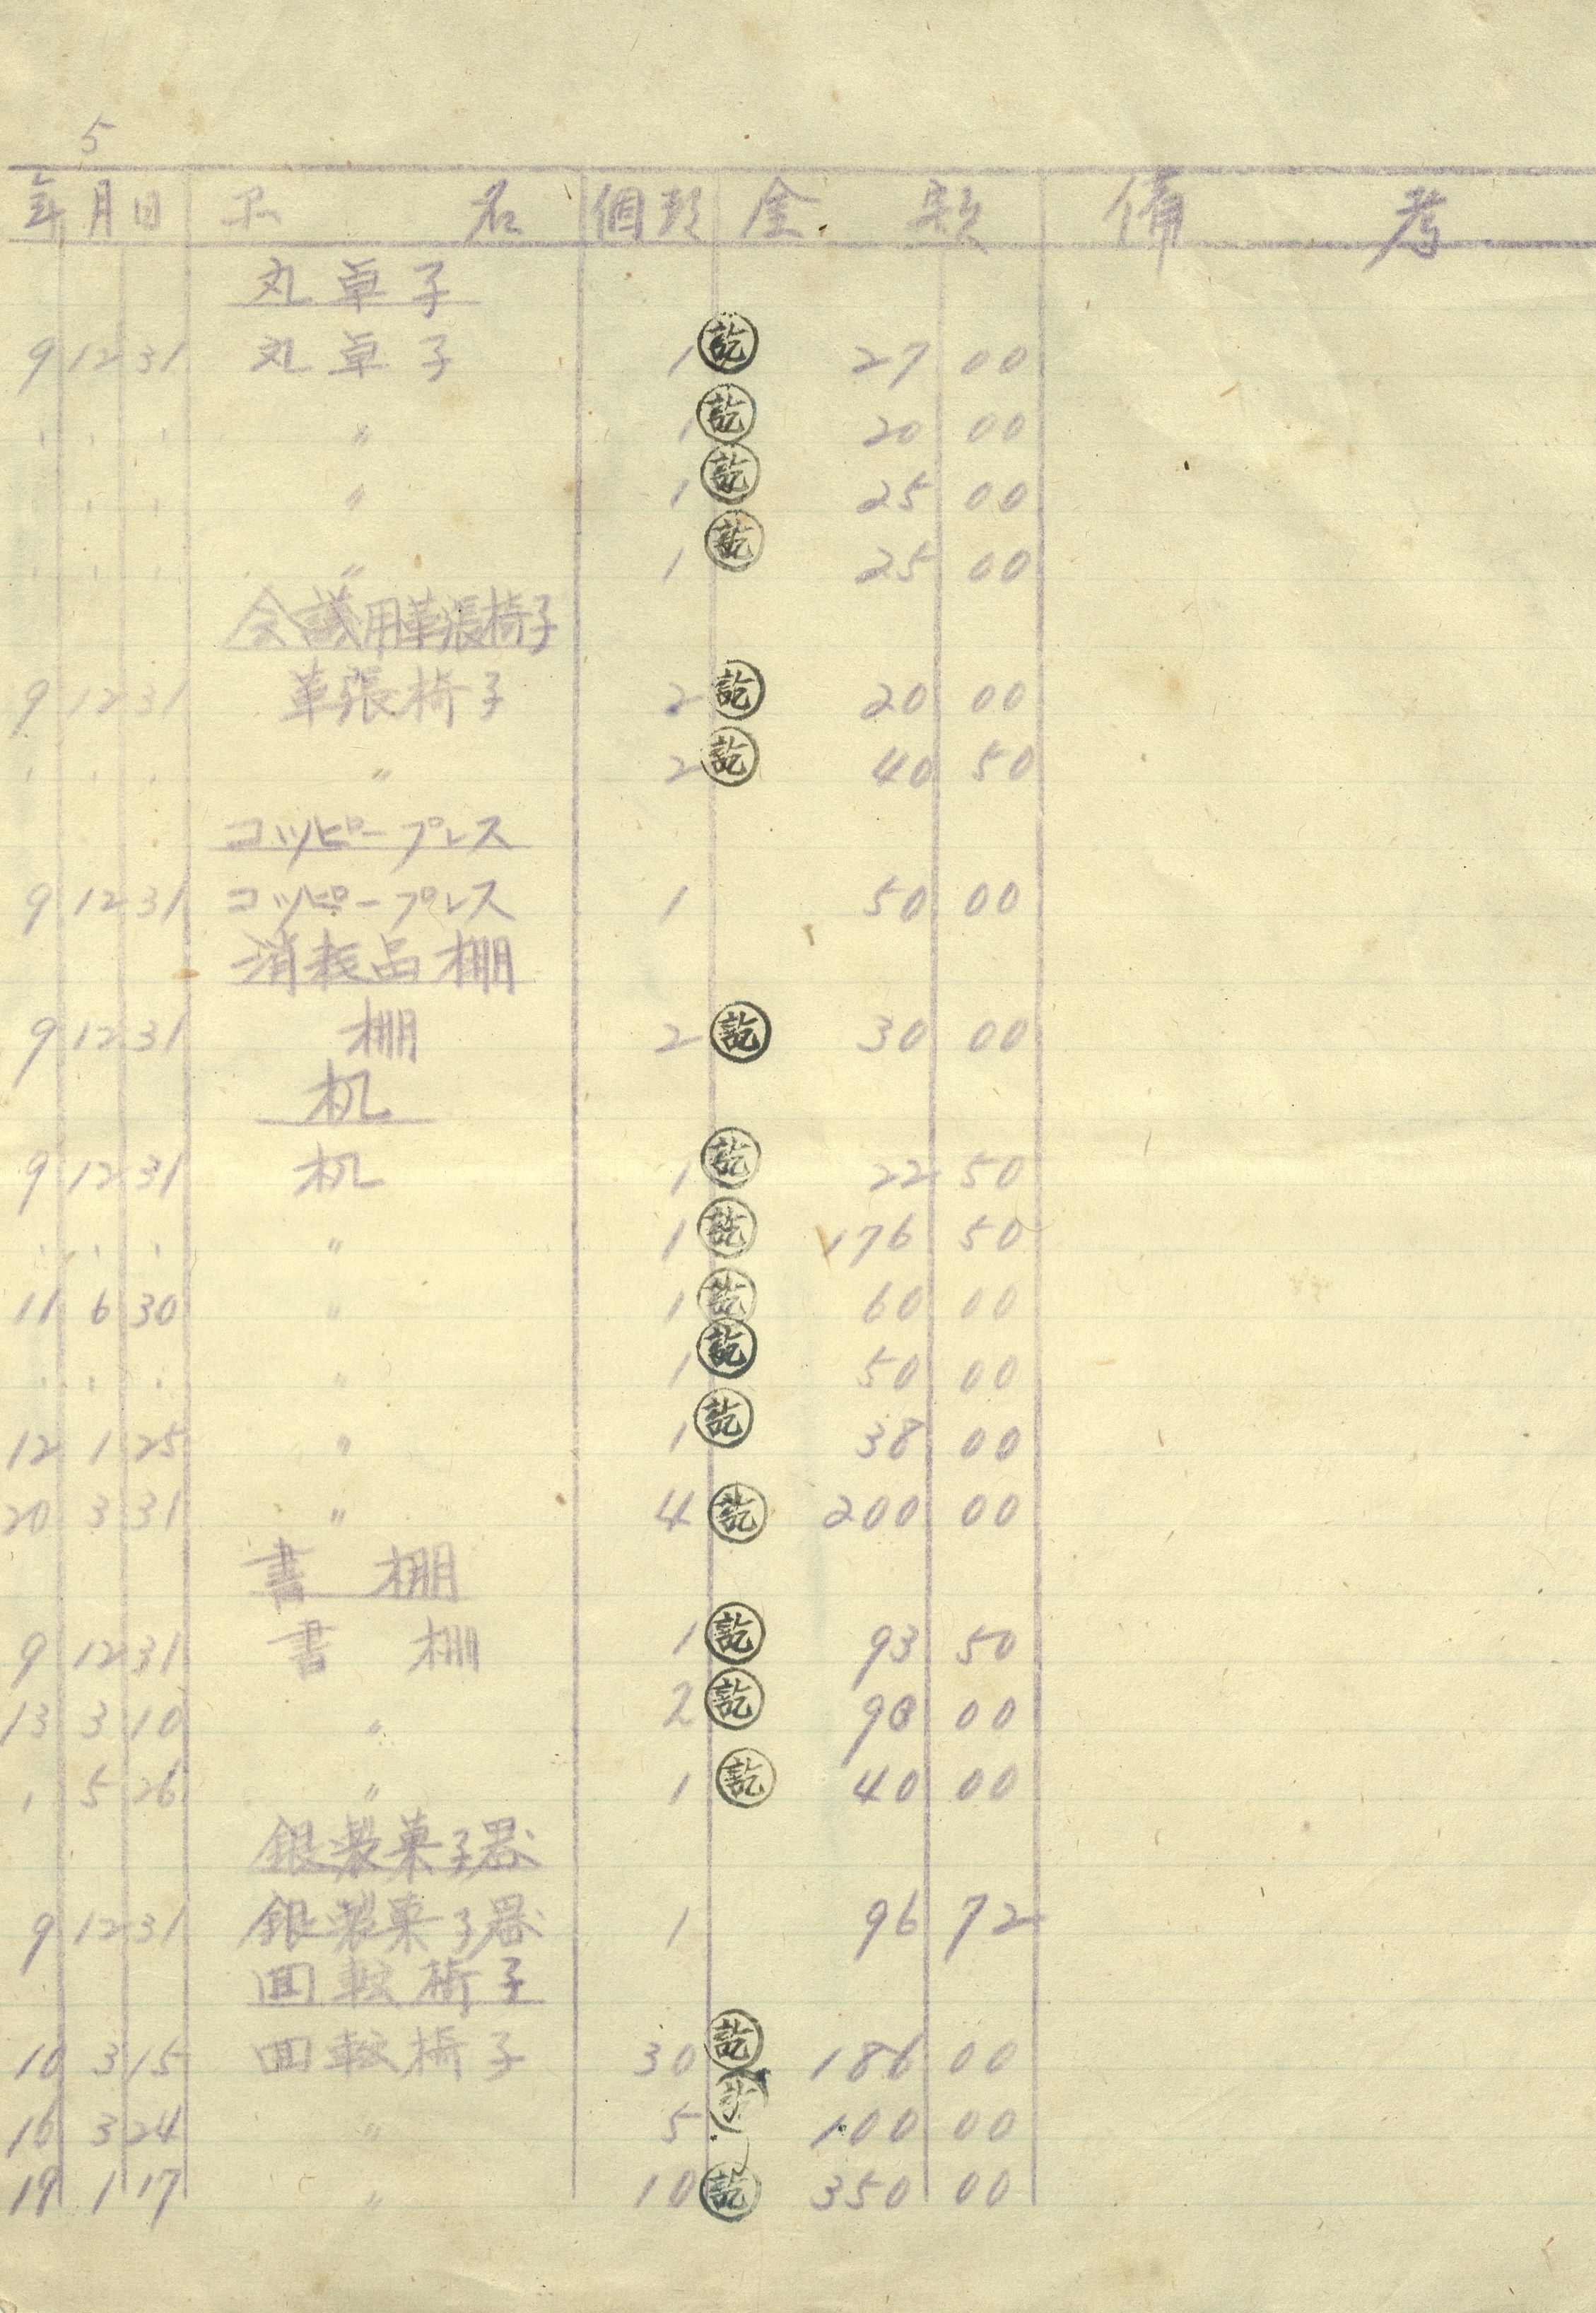 5
年 月 日 品 名 個数 金 額 備 考
丸卓子
9 12 31 丸卓子 1 訖 27 00
〃 1 訖 20 00
〃 1 訖 25 00
〃 1 訖 25 00
会議用革張椅子
9 12 31 革張椅子 2 訖 20 00
〃 2 訖 40 50
コッピープレス
9 12 31 コッピープレス 1 50 00
消耗品棚
9 12 31 棚 2 訖 30 00
机
9 12 31 机 1 訖 22 50
〃 1 訖 176 50
11 6 30 〃 1 訖 60 00
〃 1 訖 50 00
12 1 25 〃 1 訖 38 00
20 3 31 〃 4 訖 200 00
書棚
9 12 31 書棚 1 訖 93 50
13 3 10 〃 2 訖 90 00
5 26 〃 1 訖 40 00
銀製菓子器
9 12 31 銀製菓子器 1 96 72
回転椅子
10 3 15 回転椅子 30 訖 186 00
16 3 24 〃 5 100 00
19 1 17 〃 10 訖 350 00